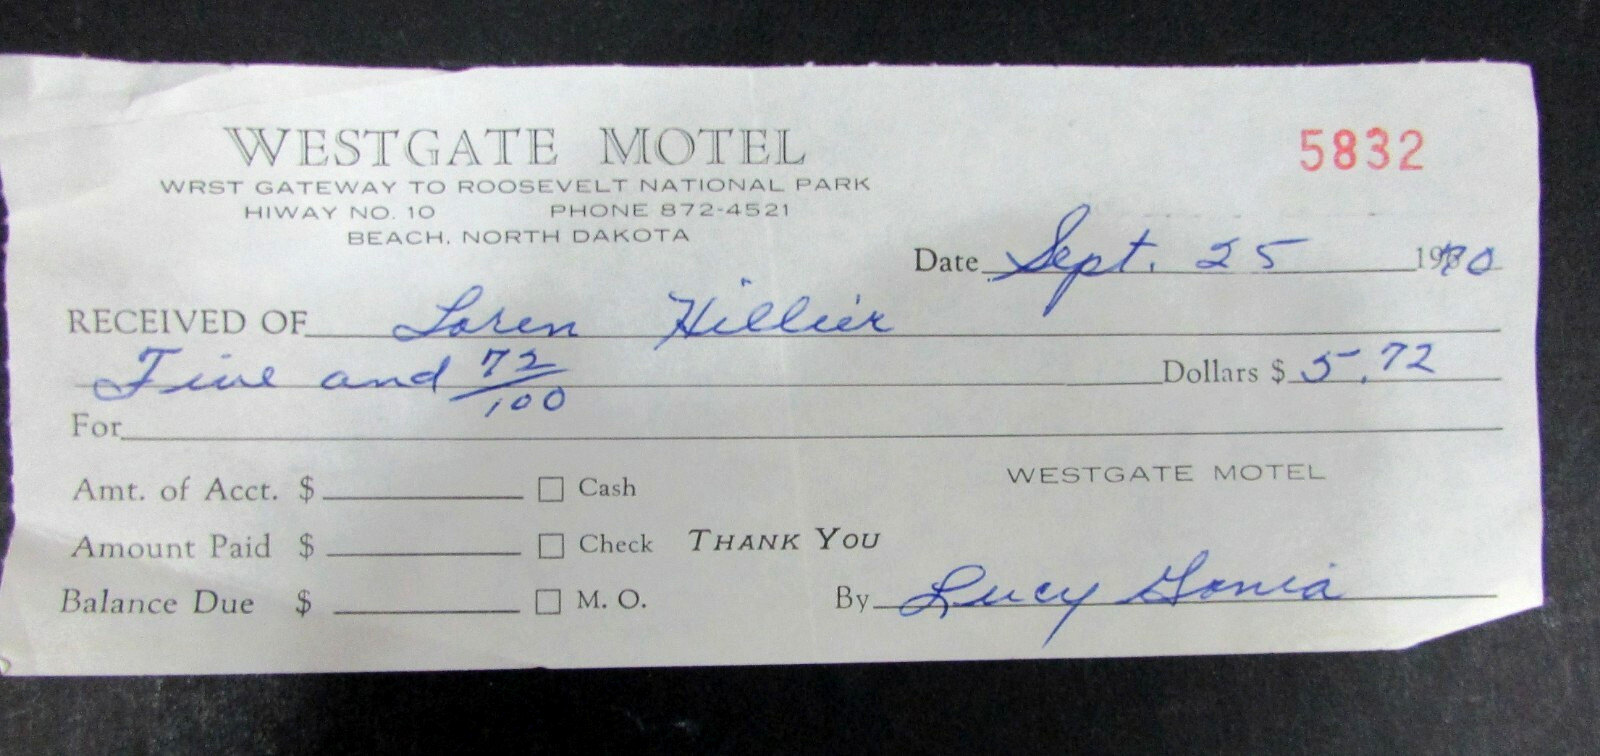 WESTGATE MOTEL
5832
WRST GATEWAY TO ROOSEVELT NATIONAL PARK
HIWAY NO. 10 PHONE 872-4521
BEACH, NORTH DAKOTA
Date Sept. 25 1970
RECEIVED OF Loren Hillier
Five and 72/100 Dollars $ 5.72
For
Amt. of Acct. $ Cash
WESTGATE MOTEL
Amount Paid $ Check THANK YOU
Balance Due $ M. O. By Lucy Gonia